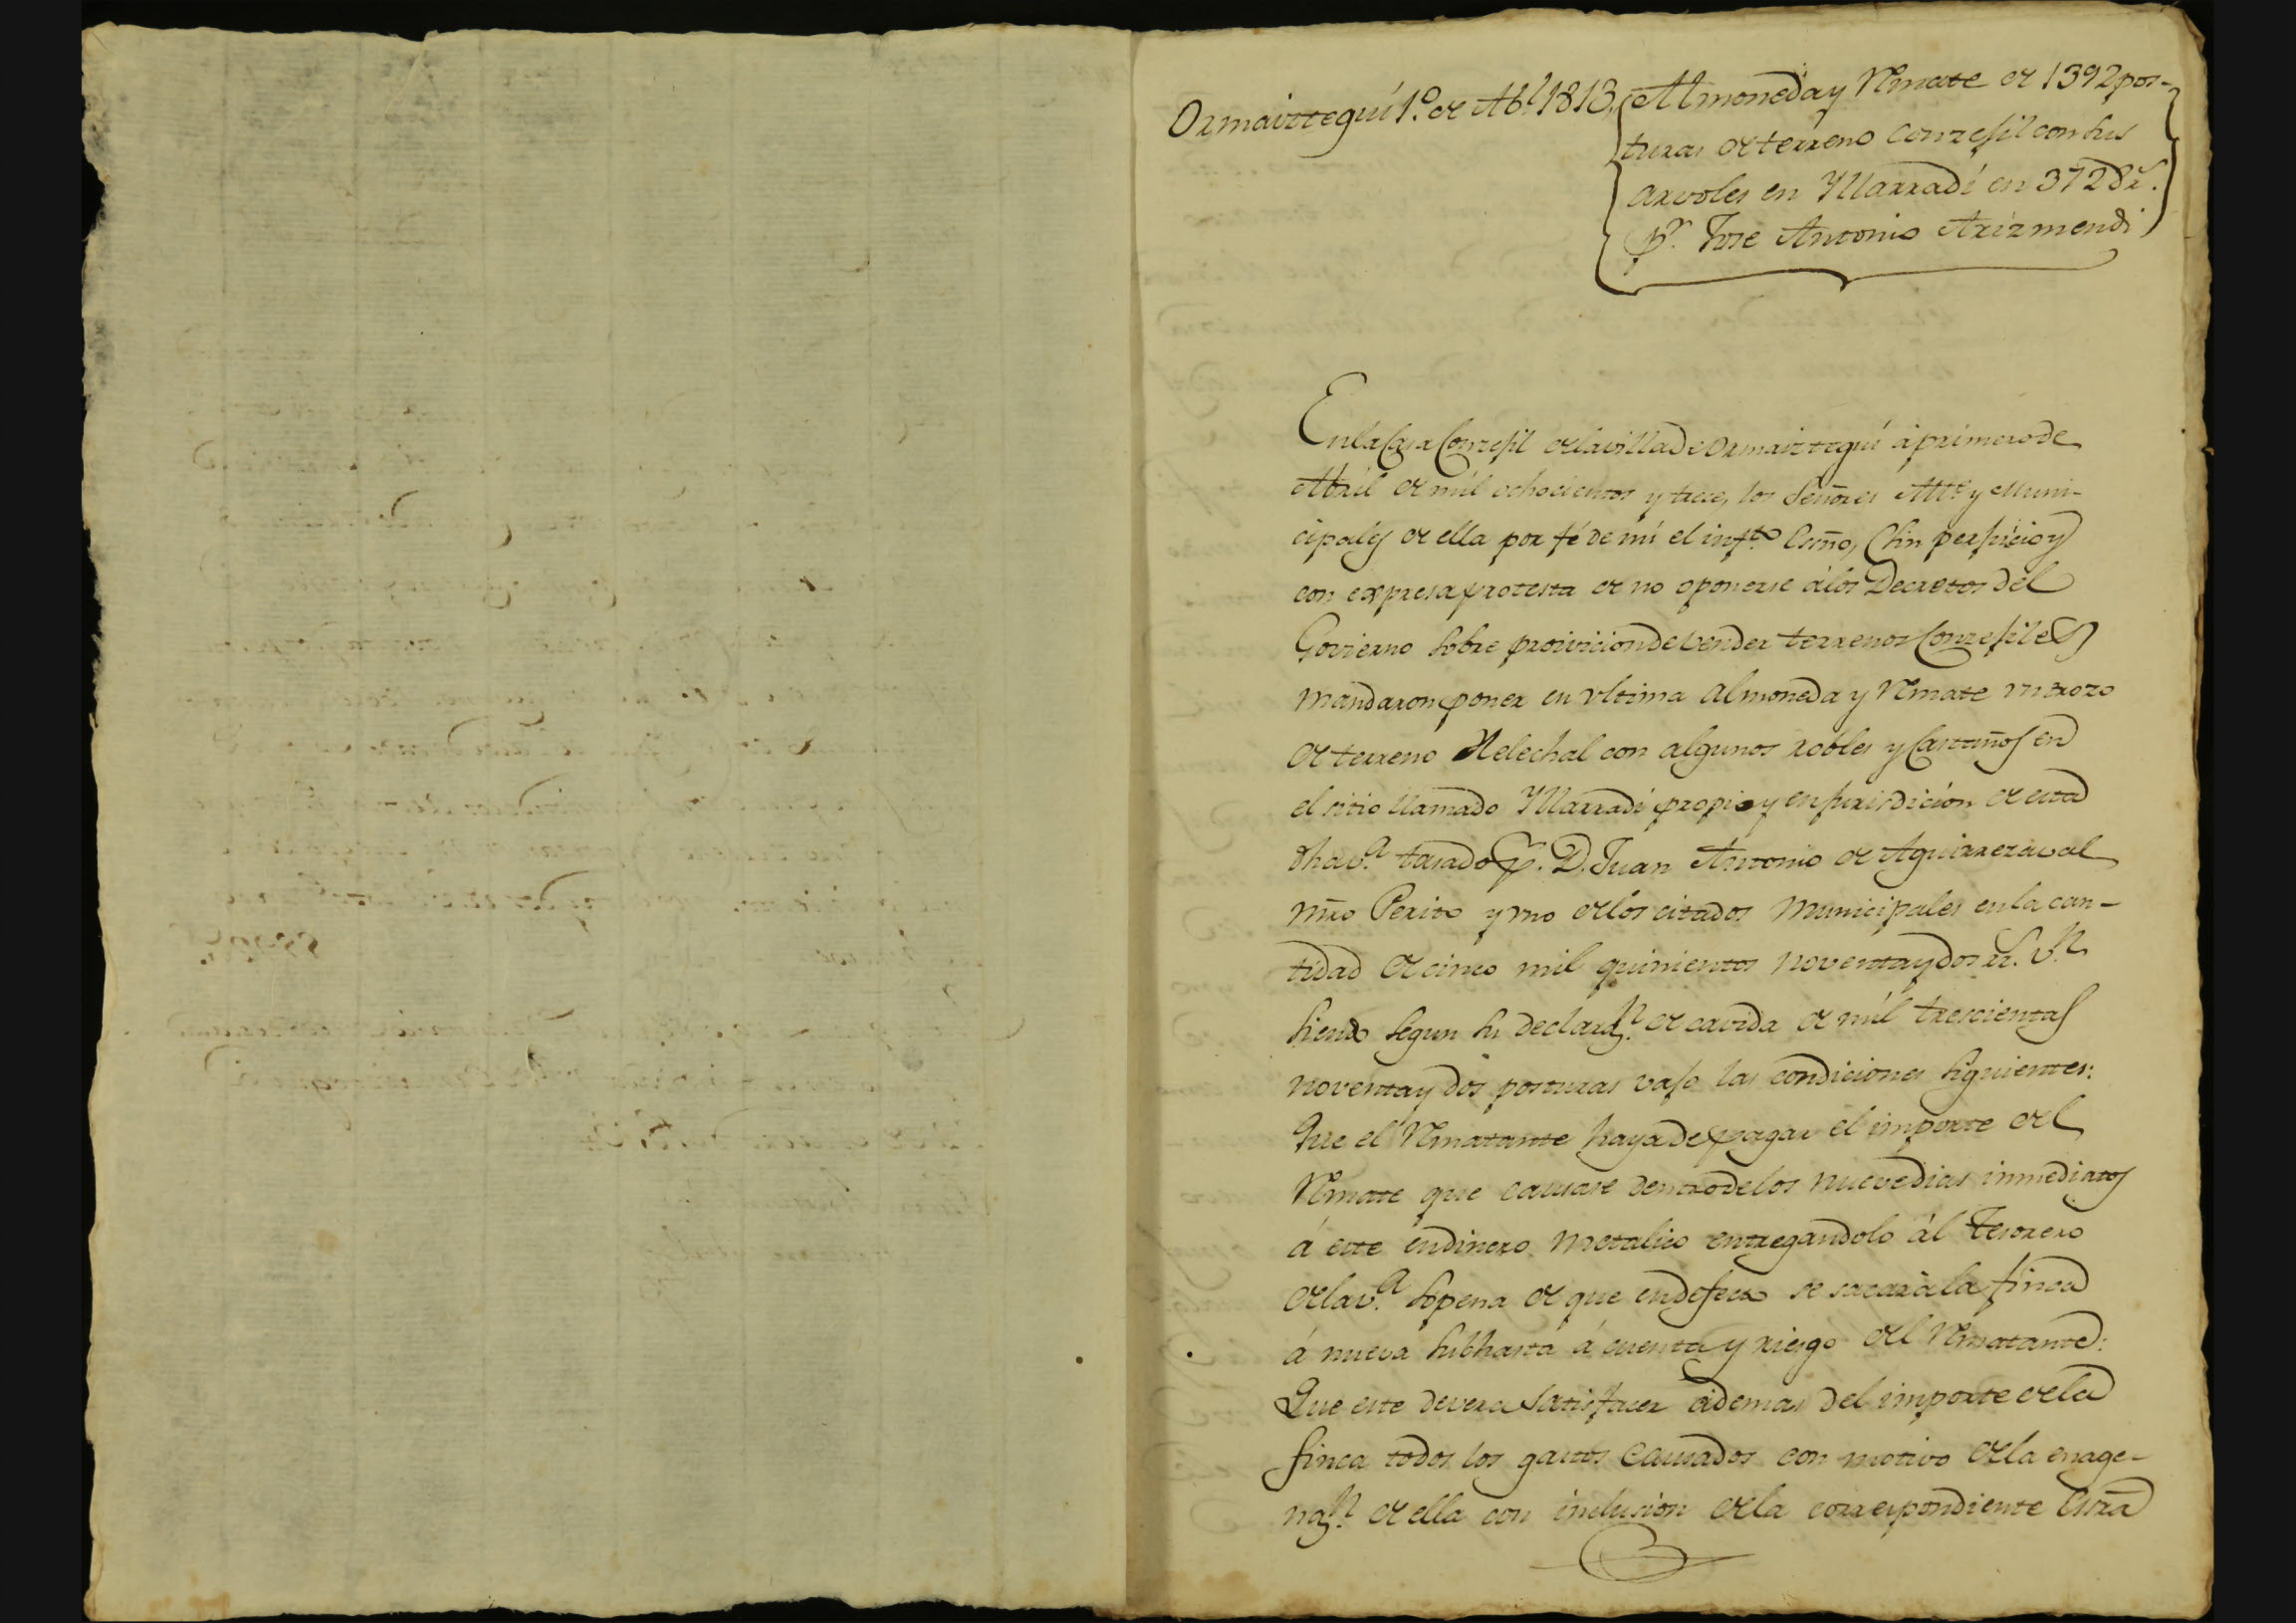 Ormaiztegui 1.º de Ab.l 1813.
Almoneda y Rmate de 1392 pos-
turas de terreno Conzejil con sus
arvoles en Yllarradi en 3728 r.s
p.r Jose Antonio Arizmendi
En la Casa Conzejil de la villa de Ormaiztegui á primero de
Abril de mil ochocientos y trece, los Señores Alc.e y Muni-
cipales de ella por fé de mi el inf.to Essno, sin perjuicio y
con expresa protesta de no oponerse á los Decretos del
Govierno sobre proivicion de vender terrenos Conzejiles
mandaron poner en vltima almoneda y Rmate vn trozo
de terreno Helechal con algunos robles y Castaños en
el sitio llamado Yllarradi propio y en jurisdicion de esta
dha v.a tasado p.r D. Juan Antonio de Aguirrezaval
mro Perito y vno de los citados Municipales en la can-
tidad de cinco mil quinientos noventa y dos rr. v.n
siendo segun su declaraz.n de cavida de mil trescientas
noventa y dos posturas vajo las condiciones siguientes:
Que el Rmatante haya de pagar el importe del
Rmate que causare dentro de los nueve dias inmediatos
á este en dinero metalico entregandolo ál Tesorero
de la v.a so pena de que en defecto se sacará la finca
á nueva subhasta á cuenta y riesgo del Rmatante:
Que este devera satisfacer ademas del importe de la
finca todos los gastos causados con motivo de la enage-
naz.n de ella con inclusion de la correspondiente Essra